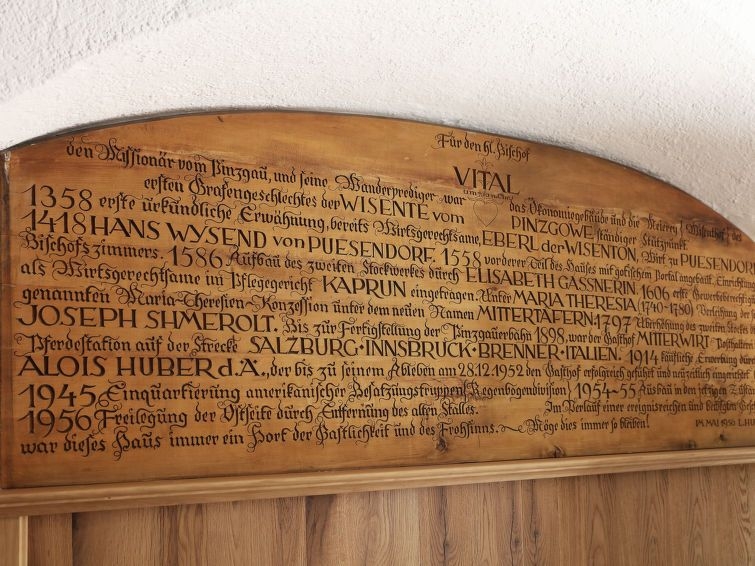 Für den hl. Bischof
VITAL
den Missionär vom Pinzgau, und seine Wanderprediger war das Ökonomiegebäude und die Meierey Wisenhof des
ersten Grafengeschlechtes der WISENTE vom PINZGOWE, ständiger Stützpunkt.
1358 erste urkundliche Erwähnung, bereits Wirtsgerechtsame, EBERL der WISENTON, Wirt zu PUESENDORF
1418 HANS WYSEND von PUESENDORF. 1558 vorderer Teil des Hauses mit gotischem Portal angebaut.
Bischofszimmers. 1586 Aufbau des zweiten Stockwerkes durch ELISABETH GASSNERIN. 1606 erste
als Wirtsgerechtsame im Pflegegericht KAPRUN eingetragen. Unter MARIA THERESIA (1740-1780) Verleihung der
genannten Maria-Theresien-Konzession unter dem neuen Namen MITTERTAFERN. 1797 Überhöhung des zweiten
JOSEPH SHMEROLT. Bis zur Fertigstellung der Pinzgauerbahn 1898, war der Gasthof MITTERWIRT
Pferdestation auf der Strecke SALZBURG·INNSBRUCK·BRENNER·ITALIEN. 1914 käufliche Erwerbung
ALOIS HUBER d.Ä., der bis zu seinem Ableben am 28.12.1952 den Gasthof erfolgreich geführt und neuzeitlich eingerichtet
1945 Einquartierung amerikanischer Besatzungstruppen (Regenbogendivision) 1954-55 Ausbau in den jetzigen
1956 Freilegung der Ostseite durch Entfernung des alten Stalles. Im Verlauf einer ereignisreichen und bewegten
war dieses Haus immer ein Hort der Gastlichkeit und des Frohsinns. Möge dies immer so bleiben!
IM MAI 1956